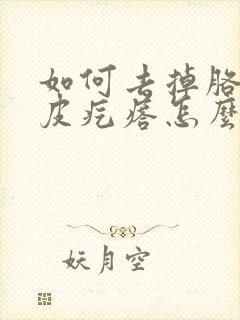 如何去掉胳
皮疙瘩怎麼
妖月空